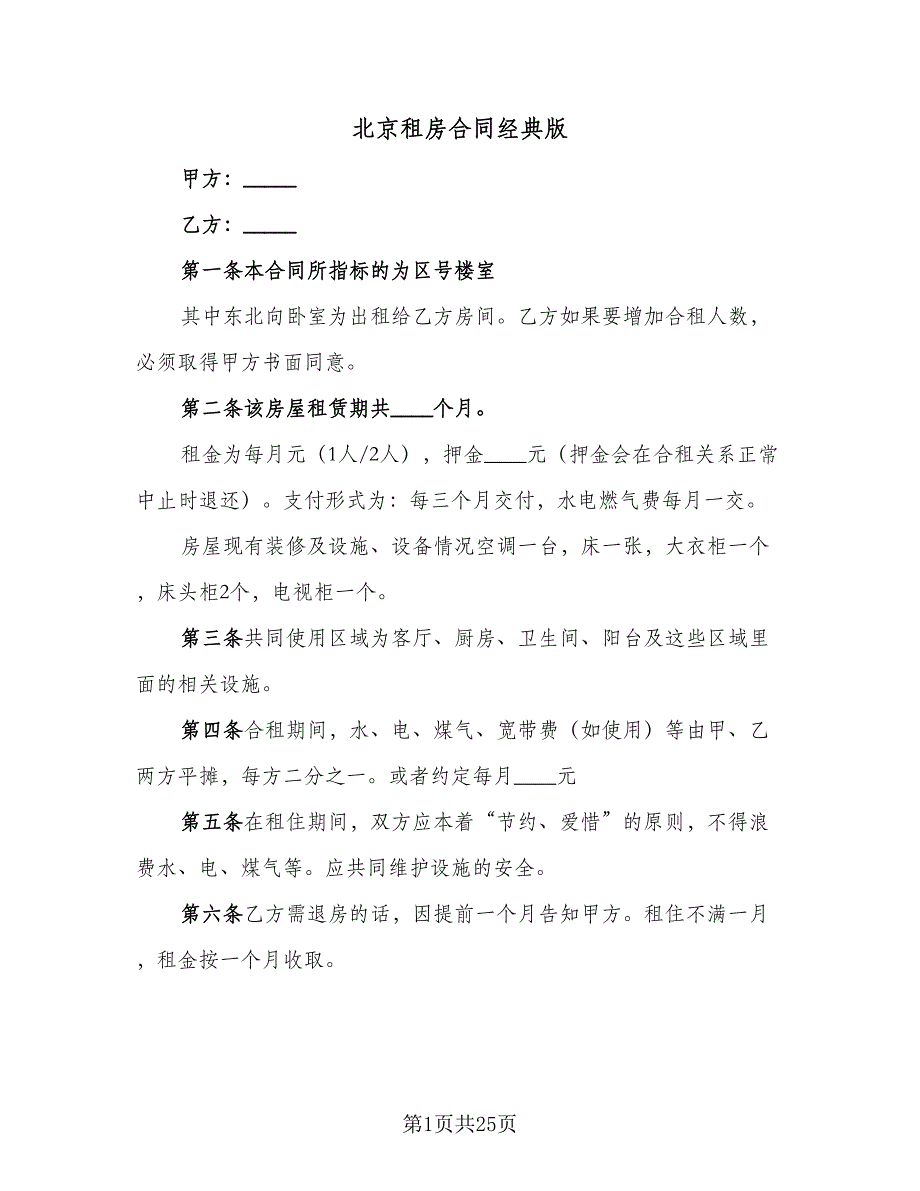 北京租房合同经典版
甲方：_____
乙方：_____
第一条本合同所指标的为区号楼室
其中东北向卧室为出租给乙方房间。乙方如果要增加合租人数，
必须取得甲方书面同意。
第二条该房屋租赁期共____个月。
租金为每月元（1人/2人），押金____元（押金会在合租关系正常
中止时退还）。支付形式为：每三个月交付，水电燃气费每月一交。
房屋现有装修及设施、设备情况空调一台，床一张，大衣柜一个
，床头柜2个，电视柜一个。
第三条共同使用区域为客厅、厨房、卫生间、阳台及这些区域里
面的相关设施。
第四条合租期间，水、电、煤气、宽带费（如使用）等由甲、乙
两方平摊，每方二分之一。或者约定每月____元
第五条在租住期间，双方应本着“节约、爱惜”的原则，不得浪
费水、电、煤气等。应共同维护设施的安全。
第六条乙方需退房的话，因提前一个月告知甲方。租住不满一月
，租金按一个月收取。
第1页共25页